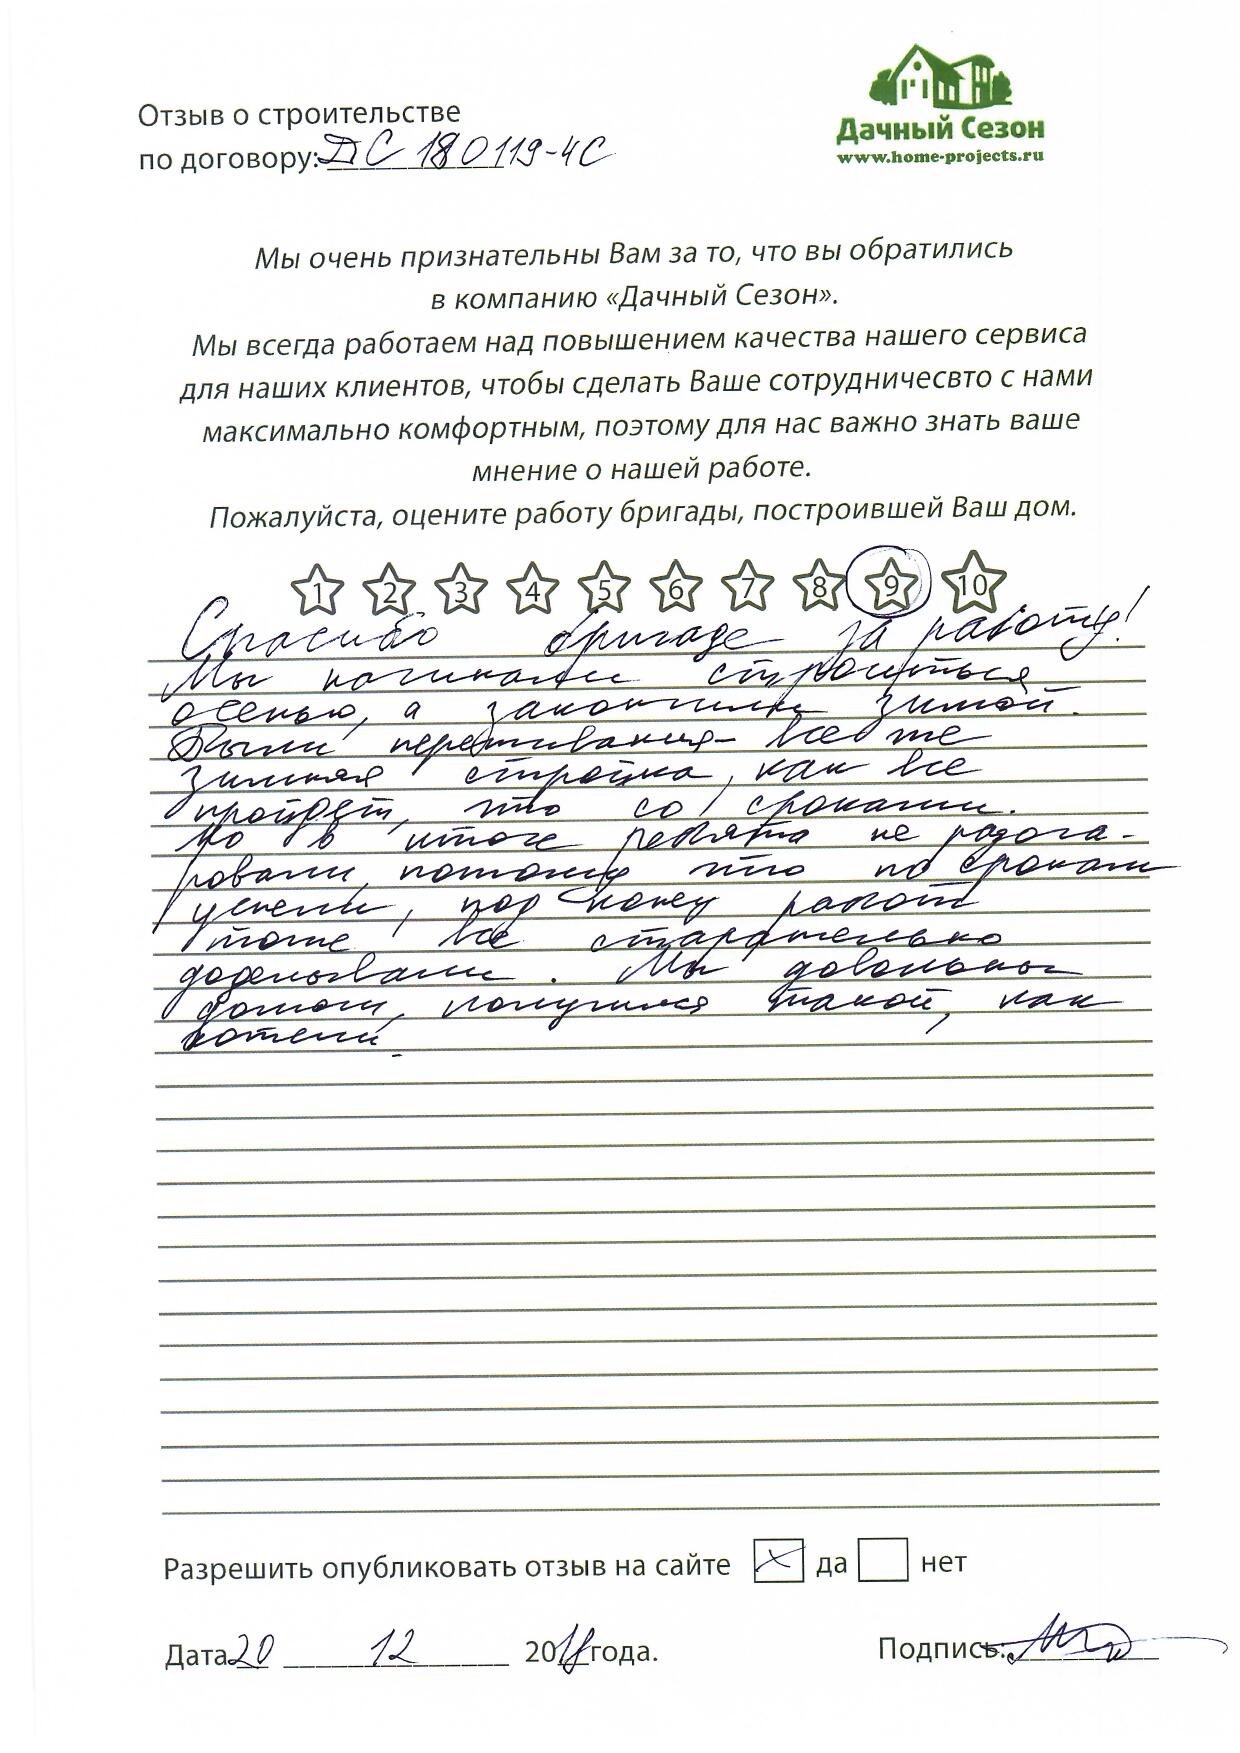 Отзыв о строительстве
по договору: ДС 180119-4С
Дачный Сезон
www.home-projects.ru
Мы очень признательны Вам за то, что вы обратились
в компанию «Дачный Сезон».
Мы всегда работаем над повышением качества нашего сервиса
для наших клиентов, чтобы сделать Ваше сотрудничесвто с нами
максимально комфортным, поэтому для нас важно знать ваше
мнение о нашей работе.
Пожалуйста, оцените работу бригады, построившей Ваш дом.
1 2 3 4 5 6 7 8 9 10
Спасибо бригаде за работу!
Мы начинали строиться
осенью, а закончили зимой.
Были переживания - все же
зимняя стройка, как все
пройдет, что со сроками.
Но в итоге ребята не
потому что по срокам
успели, под конец работ
тоже все старательно
доделывали. Мы довольны
домом, получился такой, как
хотели.
Разрешить опубликовать отзыв на сайте x да нет
Дата 20 12 2018 года. Подпись: